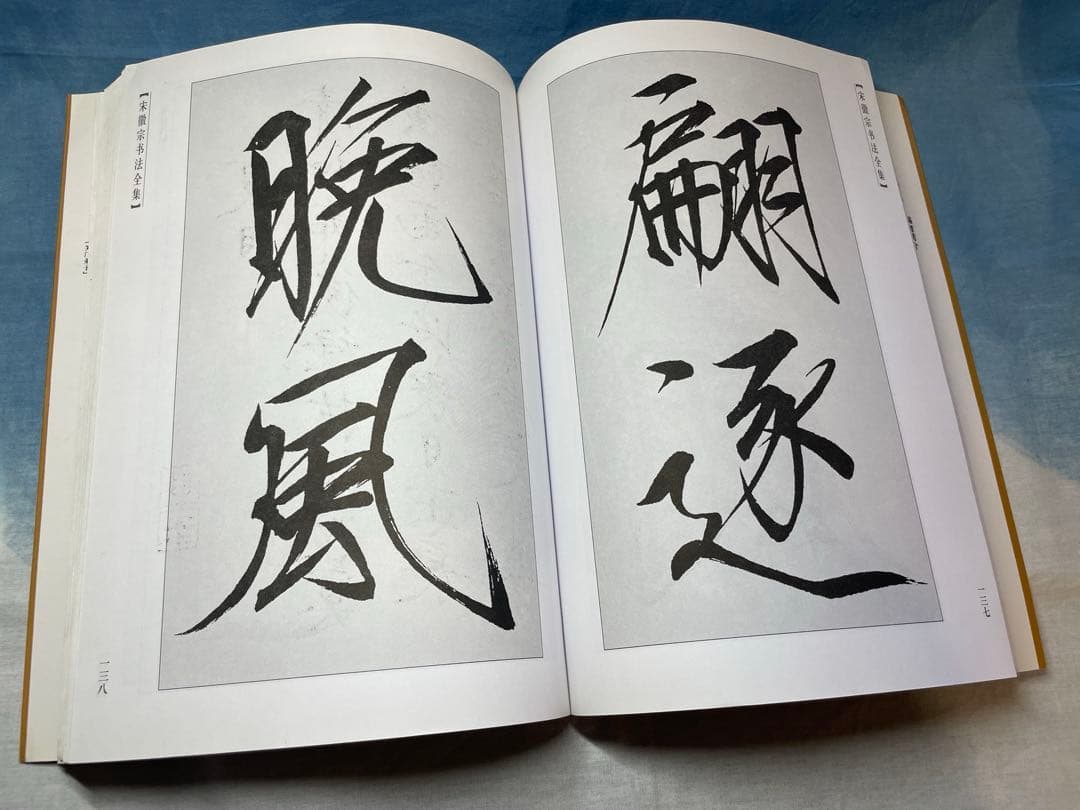 【宋徽宗书法全集】
翩
逐
一三七
【宋徽宗书法全集】
晚
风
一三八